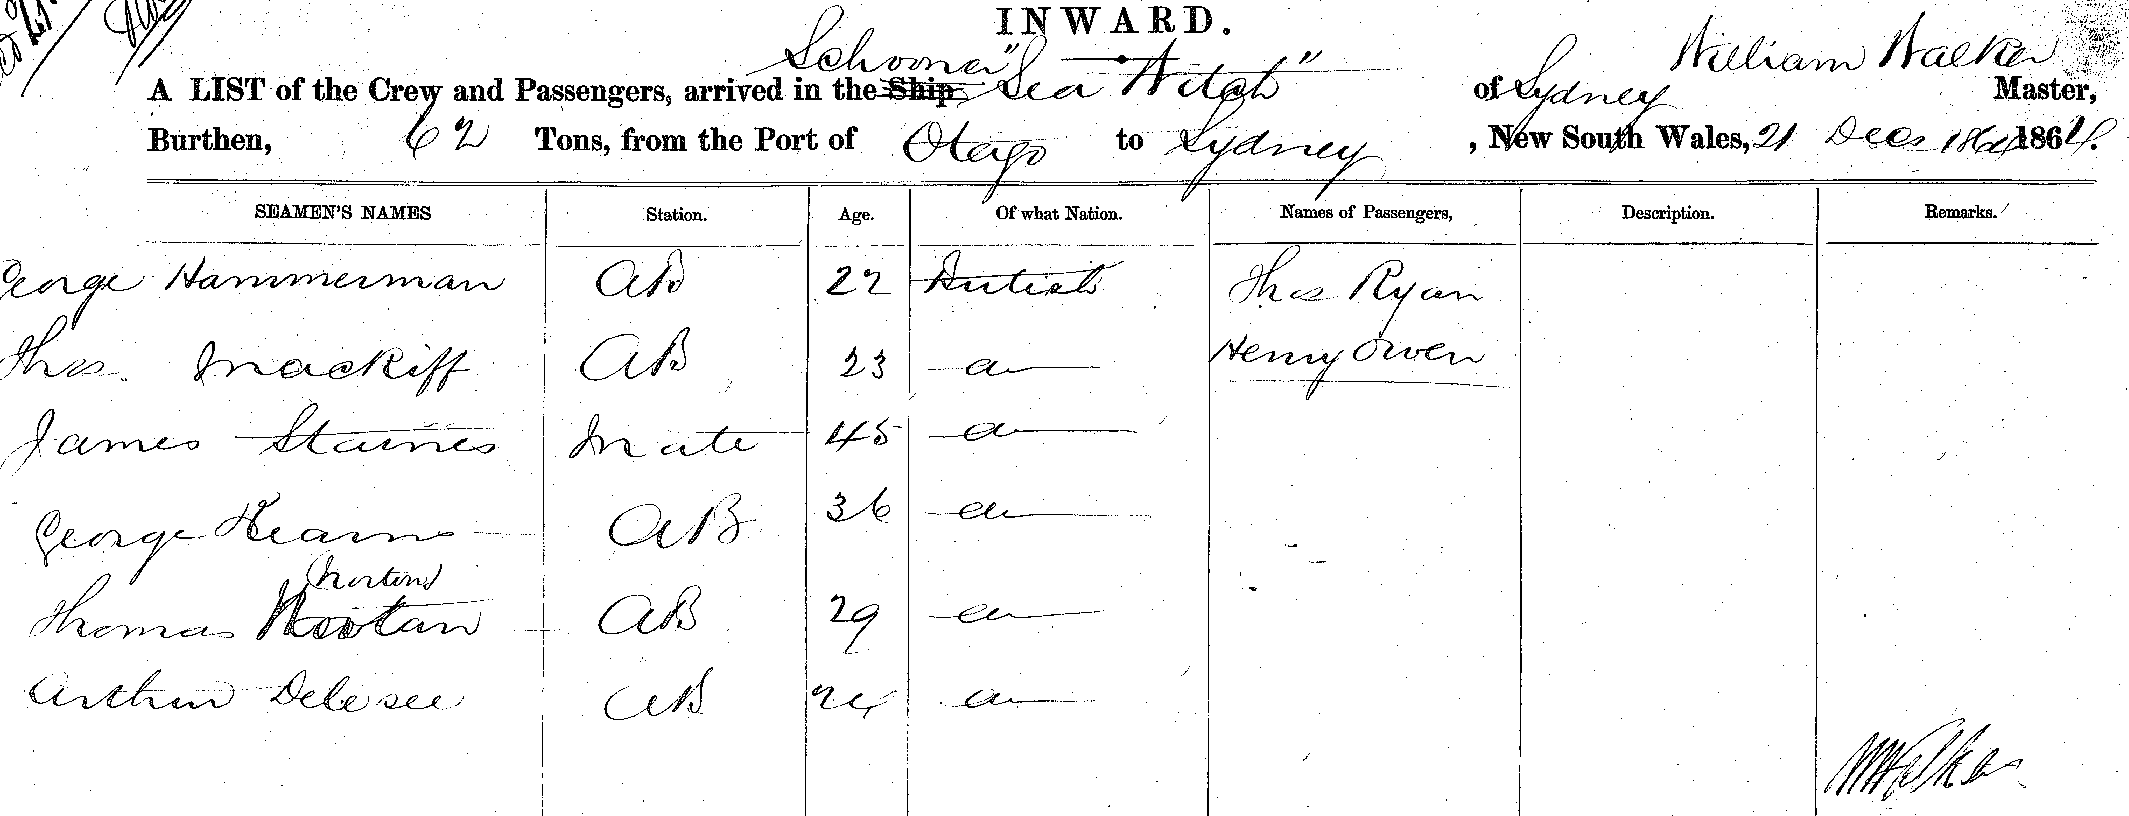 INWARD.
Schooner "Sea Witch" William Walker
A LIST of the Crew and Passengers, arrived in the Ship of Sydney Master,
Burthen, 62 Tons, from the Port of Otago to Sydney, New South Wales, 21 Decr 1864.
SEAMEN'S NAMES Station. Age. Of what Nation. Names of Passengers, Description. Remarks.
George Hammerman AB 22 British Thos Ryan
Thos. Mackiff AB 23 Henry Owen
James Staines Mate 45
George Kearns AB 36
Norton
Thomas AB 29
Arthur Delesee AB 24
WWalker